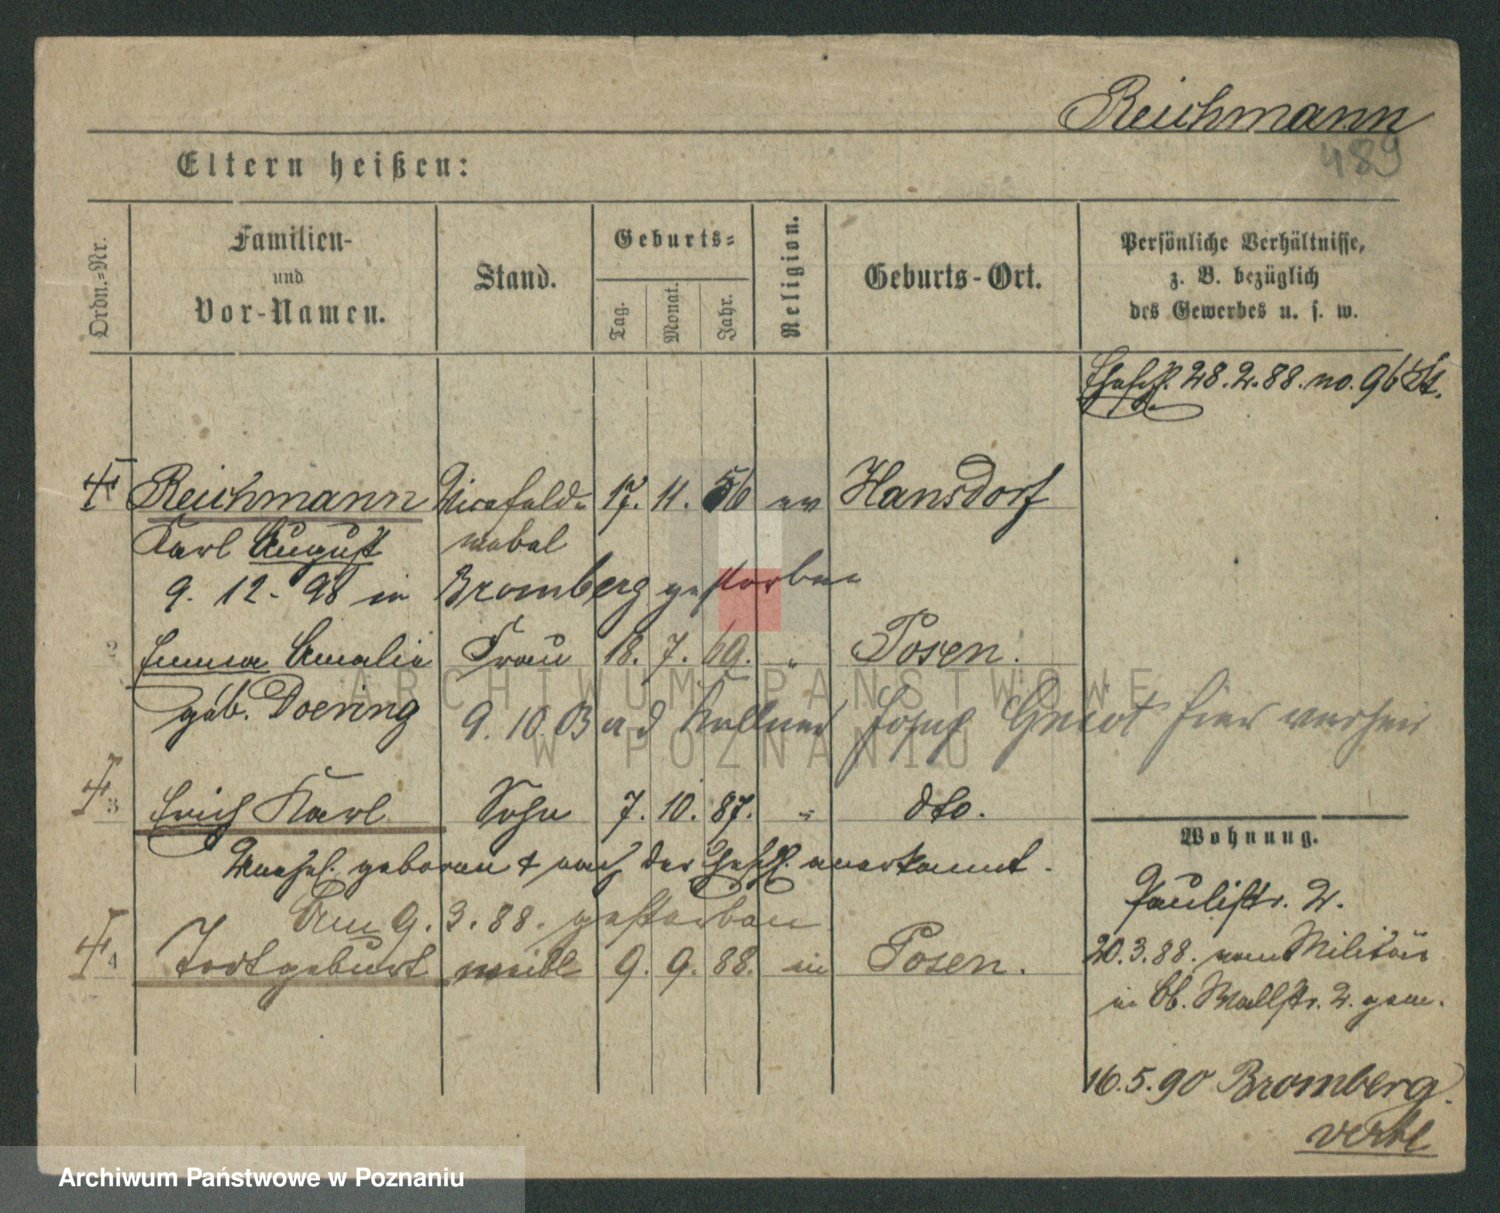 Reichmann
489
Eltern heißen:
Ordn.-Nr.
Familien-
und
Vor-Namen.
Stand.
Geburts-
Tag.
Monat.
Jahr.
Religion.
Geburts-Ort.
Persönliche Verhältnisse,
z. B. bezüglich
des Gewerbes u. s. w.
28.2.88. no. 96
Reichmann Vicefeld- 17. 11. 56 ev Hansdorf
Karl August webel
9. 12. 98 in Bromberg gestorben
2 Emma Amalie Frau 18. 7. 69. " Posen.
geb. Doering
9. 10. 03 a d Kellner Josef hier verheir
3 Erich Karl Sohn 7. 10. 87. " dto.
geboren + nach der anerkannt.
Am 9. 3. 88. gestorben
4 Todtgeburt weibl 9. 9. 88. in Posen.
Wohnung.
Paulistr. 2.
20.3.88. vom Militär
in Wallstr. 2. gem.
16.5.90 Bromberg.
verbl
ARCHIWUM PAŃSTWOWE
W POZNANIU
Archiwum Państwowe w Poznaniu